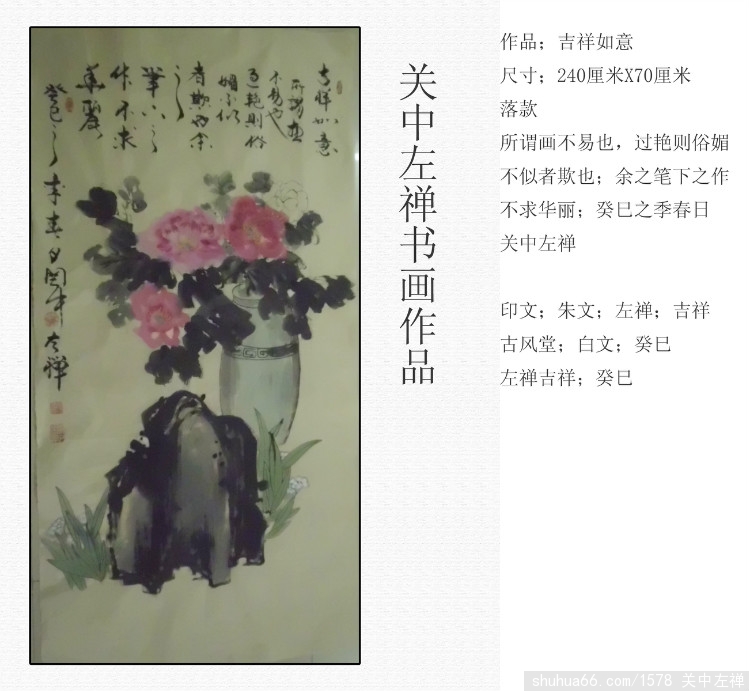 吉祥如意
所谓画
不易也
过艳则俗
媚不似
者欺也余
之
笔下之
作不求
华丽
癸巳之季春日关中左禅
关中左禅书画作品
作品；吉祥如意
尺寸；240厘米X70厘米
落款
所谓画不易也，过艳则俗媚
不似者欺也；余之笔下之作
不求华丽；癸巳之季春日
关中左禅
印文；朱文；左禅；吉祥
古风堂；白文；癸巳
左禅吉祥；癸巳
shuhua66.com/1578 关中左禅